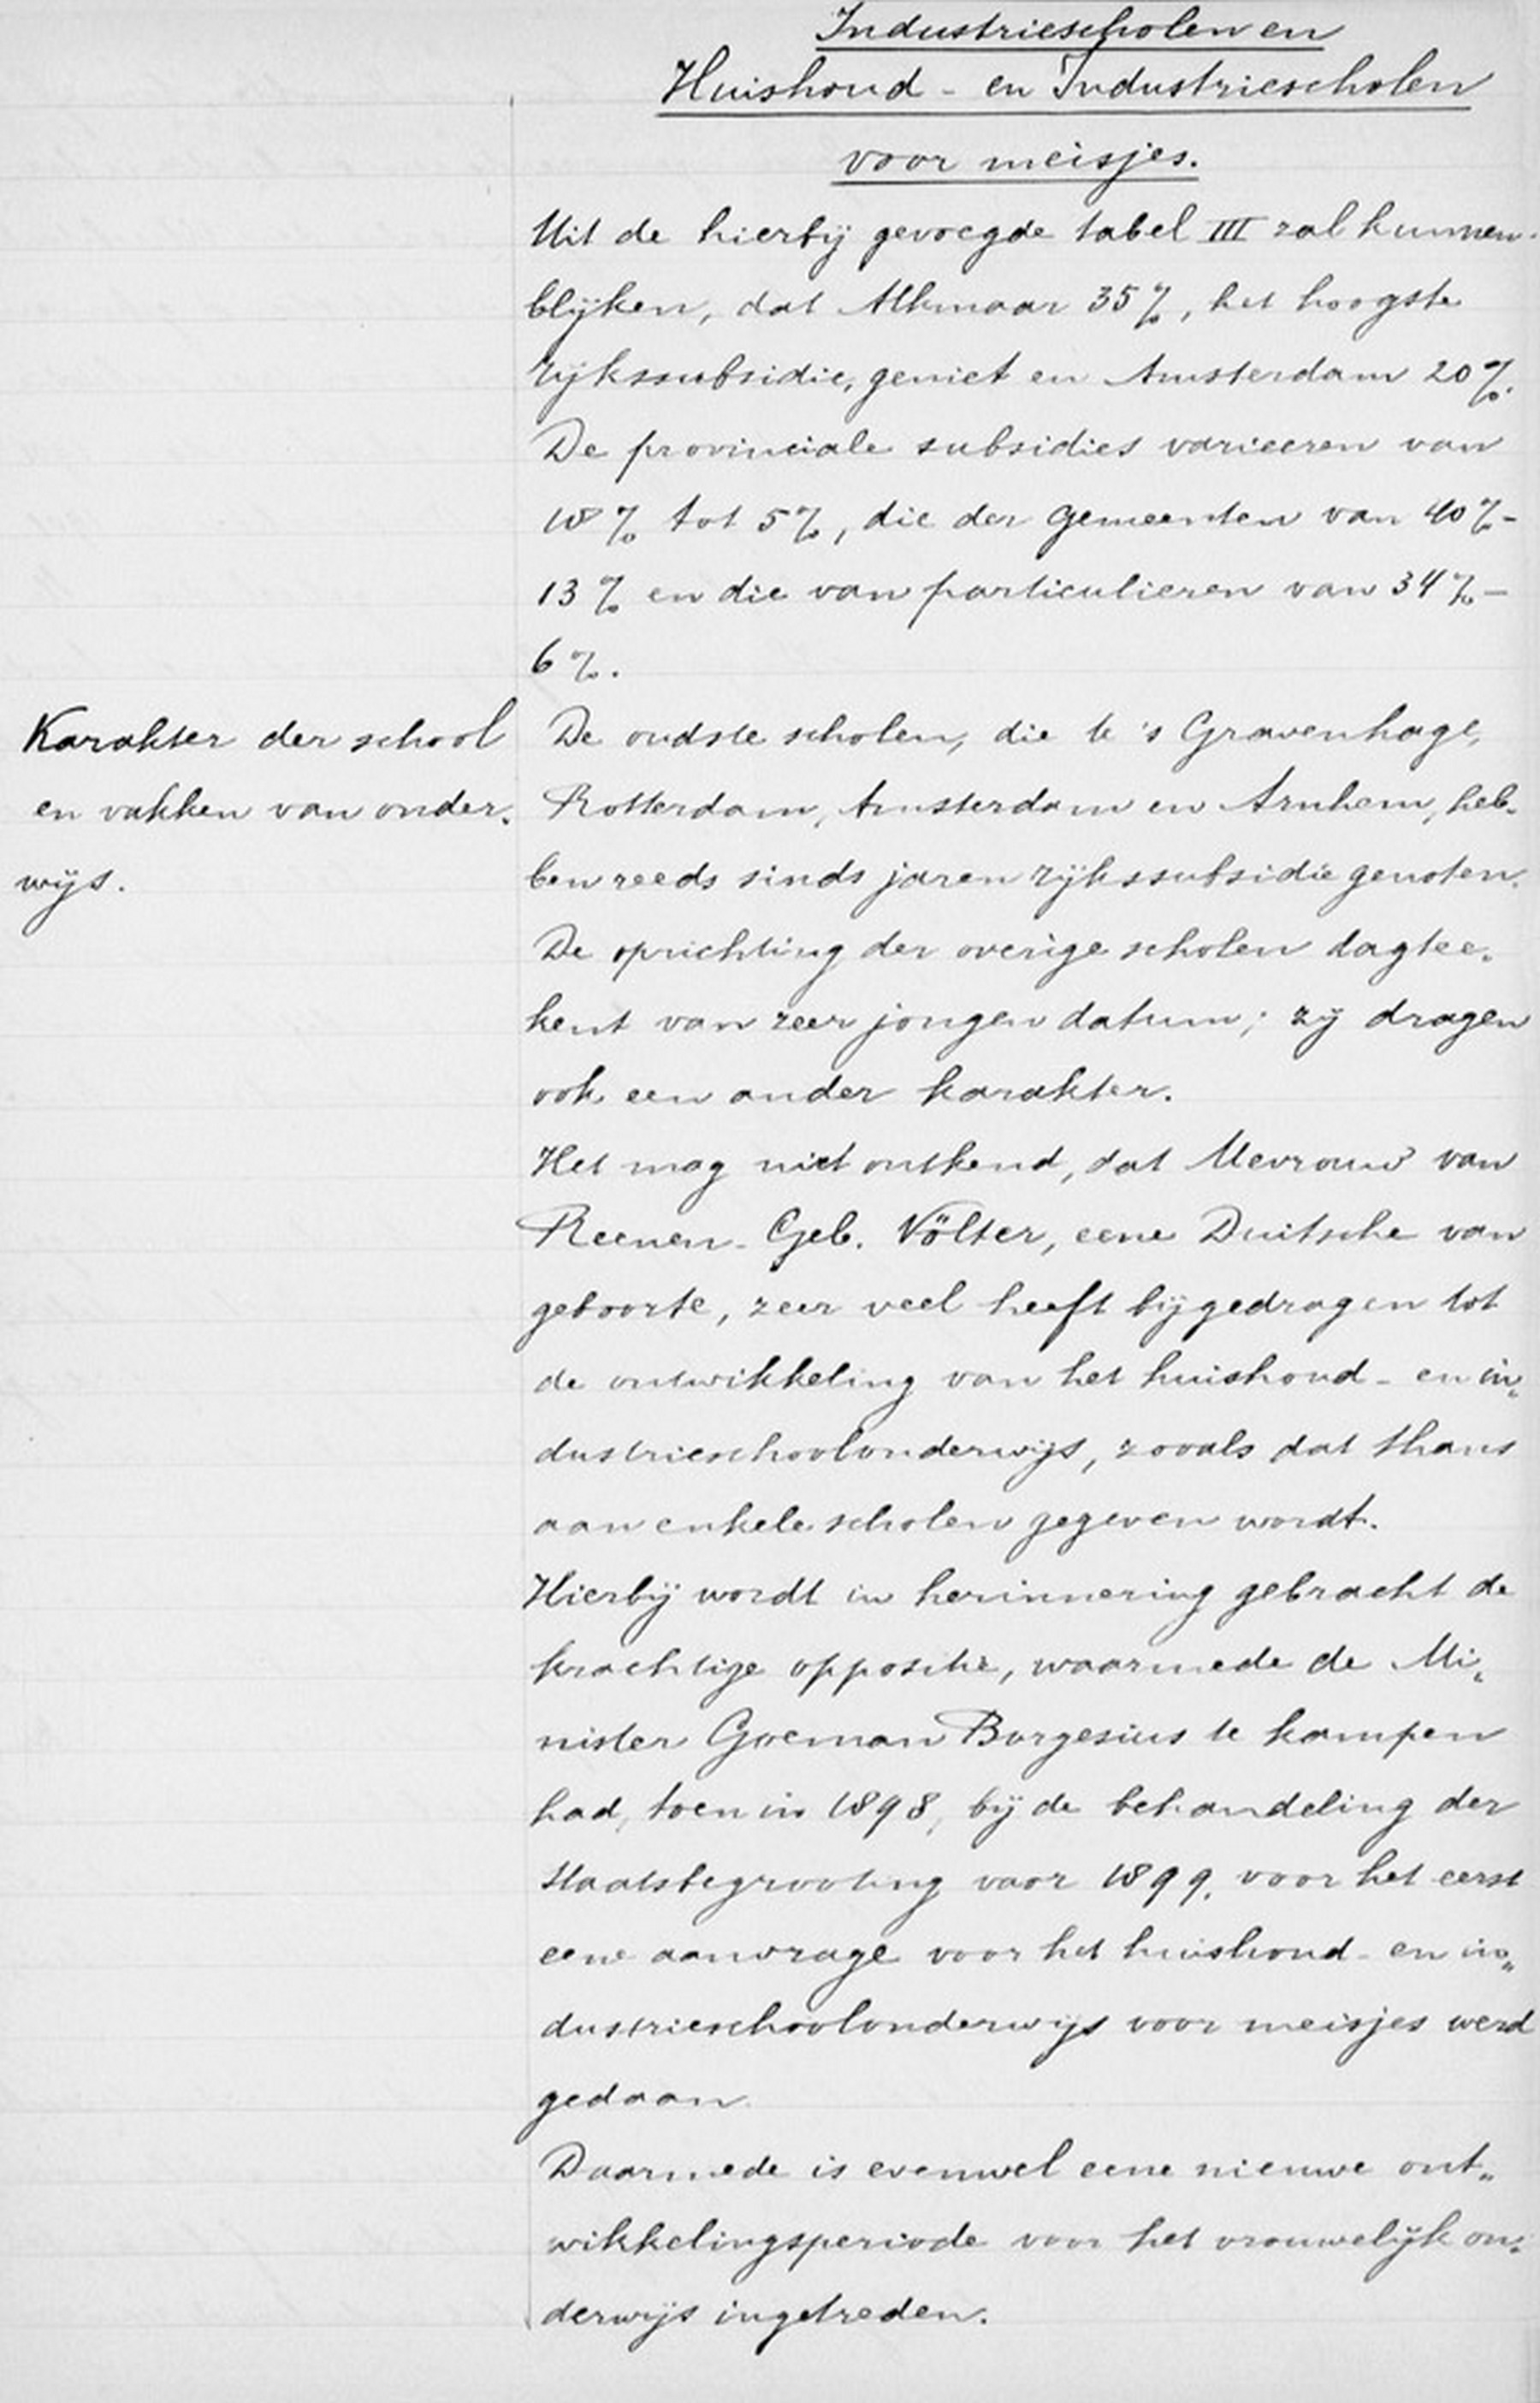 Industriescholen en
Huishoud- en Industriescholen
voor meisjes.
Uit de hierbij gevoegde tabel III zal kunnen
blijken, dat Alkmaar 35%, het hoogste
rijkssubsidie, geniet en Amsterdam 20%.
De provinciale subsidies varieeren van
18% tot 5%, die der gemeenten van 40%-
13% en die van particulieren van 34%-
6%.
Karakter der school
en vakken van onder-
wijs.
De oudste scholen, die te 's Gravenhage,
Rotterdam, Amsterdam en Arnhem, heb-
ben reeds sinds jaren rijkssubsidie genoten.
De oprichting der overige scholen dagtee-
kent van zeer jongen datum; zij dragen
ook een ander karakter.
Het mag niet ontkend, dat Mevrouw van
Reenen-Geb. Völter, eene Duitsche van
geboorte, zeer veel heeft bijgedragen tot
de ontwikkeling van het huishoud- en in-
dustrieschoolonderwijs, zooals dat thans
aan enkele scholen gegeven wordt.
Hierbij wordt in herinnering gebracht de
krachtige oppositie, waarmede de Mi-
nister Goeman Borgesius te kampen
had, toen in 1898, bij de behandeling der
Staatsbegrooting voor 1899, voor het eerst
eene aanvrage voor het huishoud- en in-
dustrieschoolonderwijs voor meisjes werd
gedaan
Daarmede is evenwel eene nieuwe ont-
wikkelingsperiode voor het vrouwelijk on-
derwijs ingetreden.